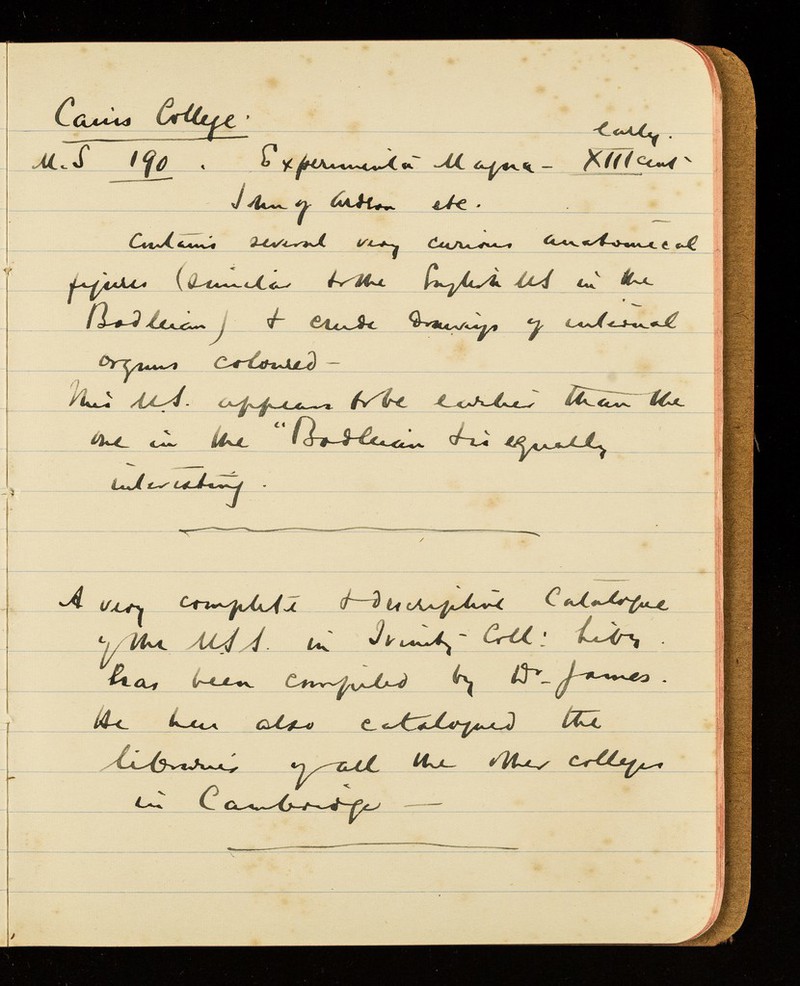 Caius College.
early.
M.S 190. Experimenta Magna - XIII cent.
John of Ardern etc.
Contains several very curious anatomical
figures (similar to the English MS in the
Bodleian) & crude drawings of internal
organs coloured -
This M.S. appears to be earlier than the
one in the "Bodleian & is equally
interesting.
A very complete & descriptive Catalogue
of the MSS. in Trinity Coll: Liby.
has been compiled by Dr. James.
He has also catalogued the
libraries of all the other colleges
in Cambridge -